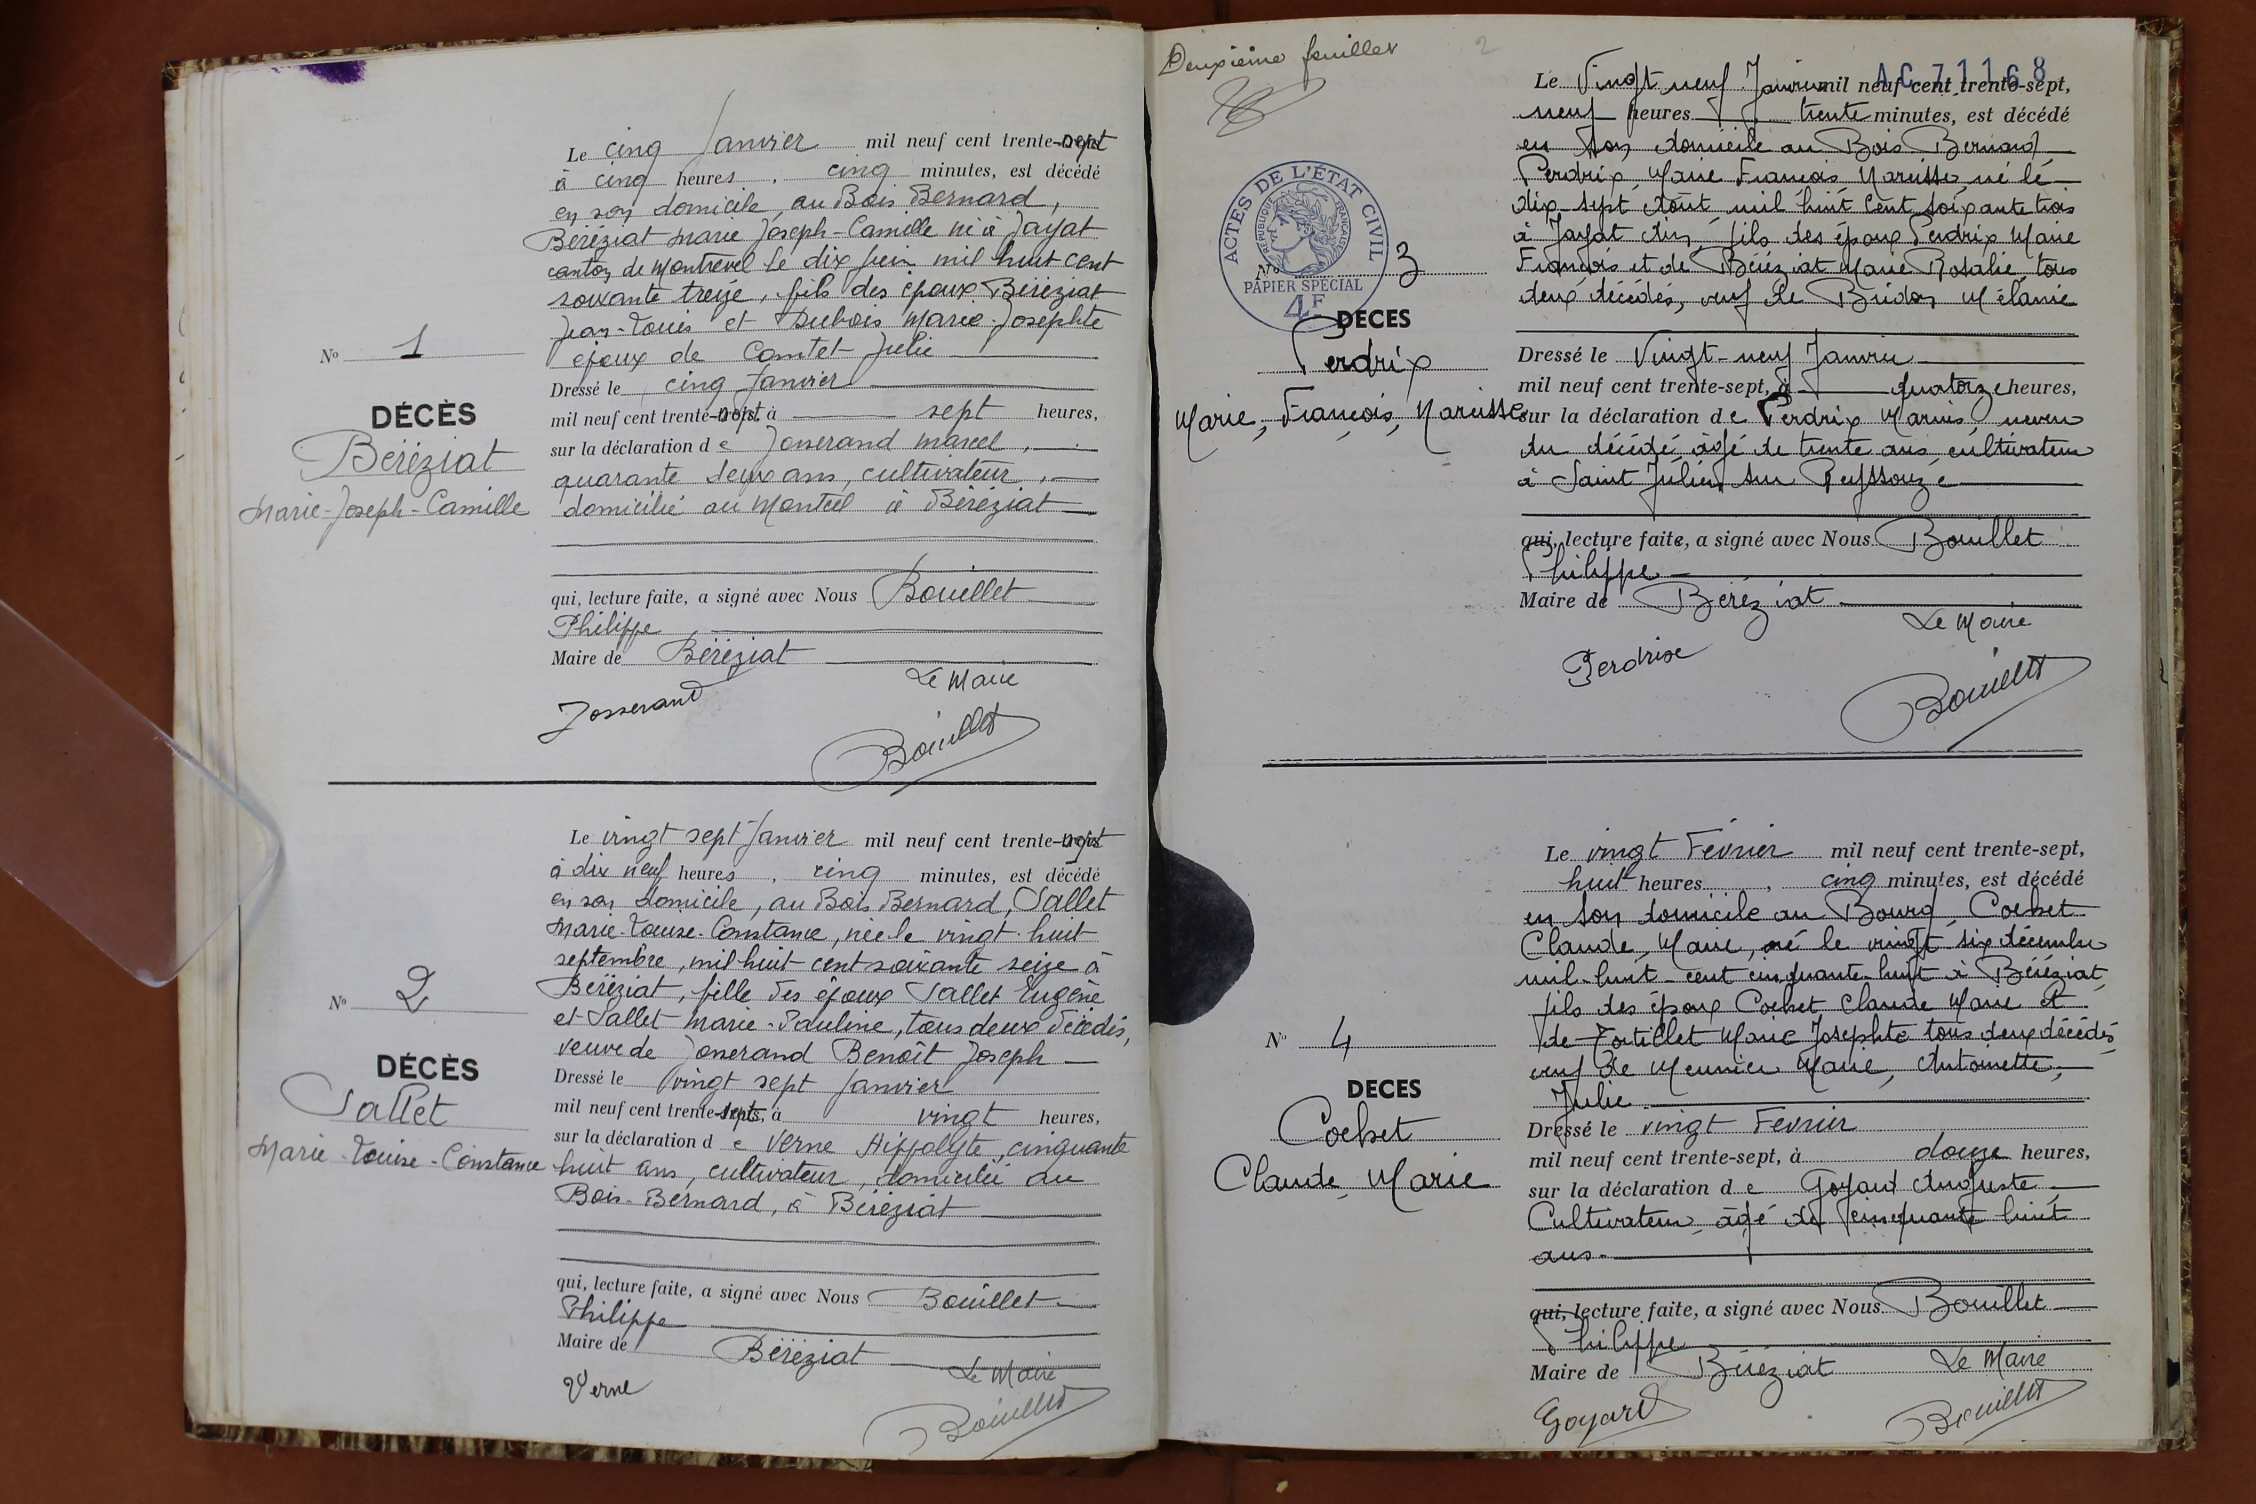 Le cinq Janvier mil neuf cent trente-sept
à cinq heures, cinq minutes, est décédé
en son domicile, au Bois Bernard,
Béréziat Marie Joseph-Camille né à Jayat
canton de Montrevel le dix juin mil huit cent
soixante treize, fils des époux Béréziat
Jean-Louis et Dubois Marie-Josephte
époux de Comtet Julie
Nº 1
DÉCÈS
Béréziat
Marie-Joseph-Camille
Dressé le cinq Janvier
mil neuf cent trente-sept à sept heures,
sur la déclaration de Josserand Marcel,
quarante deux ans, cultivateur,
domicilié au Monteil à Béréziat
qui, lecture faite, a signé avec Nous Bouillet
Philippe
Maire de Béréziat
Le Maire
Josserand
Bouillet
Le vingt sept Janvier mil neuf cent trente-sept
à dix neuf heures, cinq minutes, est décédé
en son domicile, au Bois Bernard, Sallet
Marie-Louise-Constance, née le vingt-huit
septembre, mil huit cent soixante seize à
Béréziat, fille des époux Sallet Eugène
et Sallet Marie-Pauline, tous deux décédés,
veuve de Josserand Benoît Joseph
Nº 2
DÉCÈS
Sallet
Marie-Louise-Constance
Dressé le vingt sept Janvier
mil neuf cent trente-sept, à vingt heures,
sur la déclaration de Verne Hippolyte, cinquante
huit ans, cultivateur, domicilié au
Bois-Bernard, à Béréziat
qui, lecture faite, a signé avec Nous Bouillet
Philippe
Maire de Béréziat
Le Maire
Verne
Bouillet
Deuxième feuillet
2
AC 71168
Le Vingt neuf Janvier mil neuf cent trente-sept,
neuf heures trente minutes, est décédé
en son domicile au Bois Bernard
Perdrix, Marie François Narcisse, né le
dix-sept Août mil huit cent soixante trois
à Jayat Ain, fils des époux Perdrix Marie
François et de Béréziat Marie Rosalie, tous
deux décédés, veuf de Bridon Mélanie
ACTES DE L'ÉTAT CIVIL
RÉPUBLIQUE FRANÇAISE
PAPIER SPÉCIAL
4F
Nº 3
DÉCES
Perdrix
Marie, François, Narcisse
Dressé le Vingt-neuf Janvier
mil neuf cent trente-sept, à quatorze heures,
sur la déclaration de Perdrix Marius, neveu
du décédé, âgé de trente ans, cultivateur
à Saint Julien sur Reyssouze
qui, lecture faite, a signé avec Nous Bouillet
Philippe
Maire de Béréziat
Le Maire
Perdrix
Bouillet
Le vingt Février mil neuf cent trente-sept,
huit heures, cinq minutes, est décédé
en son domicile au Bourg, Cochet
Claude, Marie, né le vingt six décembre
mil-huit-cent cinquante-huit à Béréziat,
fils des époux Cochet Claude Marie et
de Fortillet Marie Josephte tous deux décédés
veuf de Meunier Marie, Antoinette,
Julie
Nº 4
DECES
Cochet
Claude, Marie
Dressé le vingt Février
mil neuf cent trente-sept, à douze heures,
sur la déclaration de Goyard Auguste,
Cultivateur, âgé de cinquante huit
ans.
qui, lecture faite, a signé avec Nous Bouillet
Philippe
Maire de Béréziat
Le Maire
Goyard
Bouillet